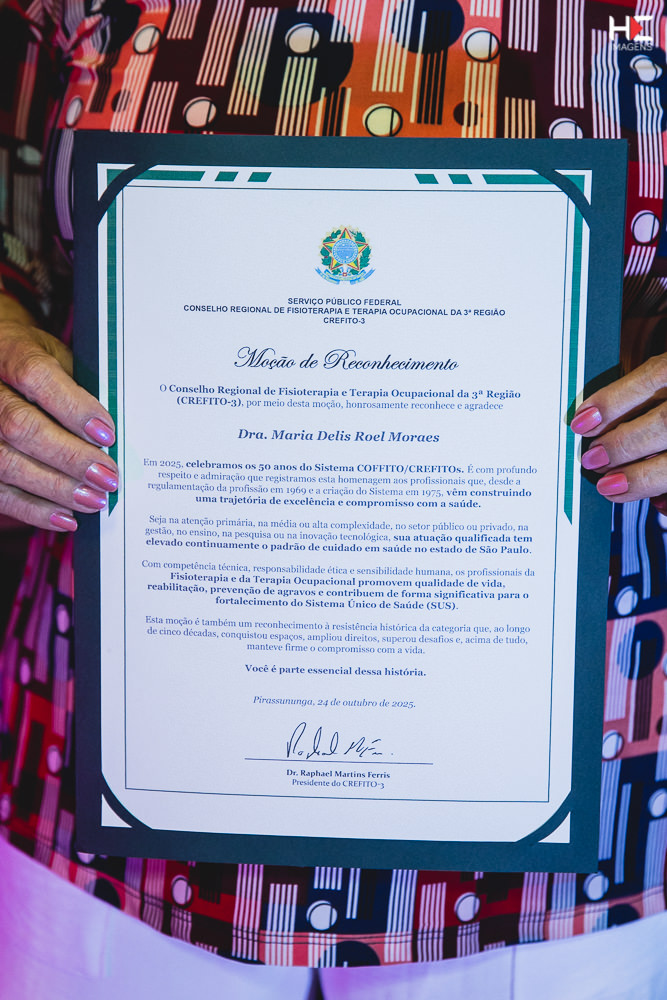 HZ
IMAGENS
SERVIÇO PÚBLICO FEDERAL
CONSELHO REGIONAL DE FISIOTERAPIA E TERAPIA OCUPACIONAL DA 3ª REGIÃO
CREFITO-3
Moção de Reconhecimento
O Conselho Regional de Fisioterapia e Terapia Ocupacional da 3ª Região
(CREFITO-3), por meio desta moção, honrosamente reconhece e agradece
Dra. Maria Delis Roel Moraes
Em 2025, celebramos os 50 anos do Sistema COFFITO/CREFITOs. É com profundo
respeito e admiração que registramos esta homenagem aos profissionais que, desde a
regulamentação da profissão em 1969 e a criação do Sistema em 1975, vêm construindo
uma trajetória de excelência e compromisso com a saúde.
Seja na atenção primária, na média ou alta complexidade, no setor público ou privado, na
gestão, no ensino, na pesquisa ou na inovação tecnológica, sua atuação qualificada tem
elevado continuamente o padrão de cuidado em saúde no estado de São Paulo.
Com competência técnica, responsabilidade ética e sensibilidade humana, os profissionais da
Fisioterapia e da Terapia Ocupacional promovem qualidade de vida,
reabilitação, prevenção de agravos e contribuem de forma significativa para o
fortalecimento do Sistema Único de Saúde (SUS).
Esta moção é também um reconhecimento à resistência histórica da categoria que, ao longo
de cinco décadas, conquistou espaços, ampliou direitos, superou desafios e, acima de tudo,
manteve firme o compromisso com a vida.
Você é parte essencial dessa história.
Pirassununga, 24 de outubro de 2025.
Dr. Raphael Martins Ferris
Presidente do CREFITO-3